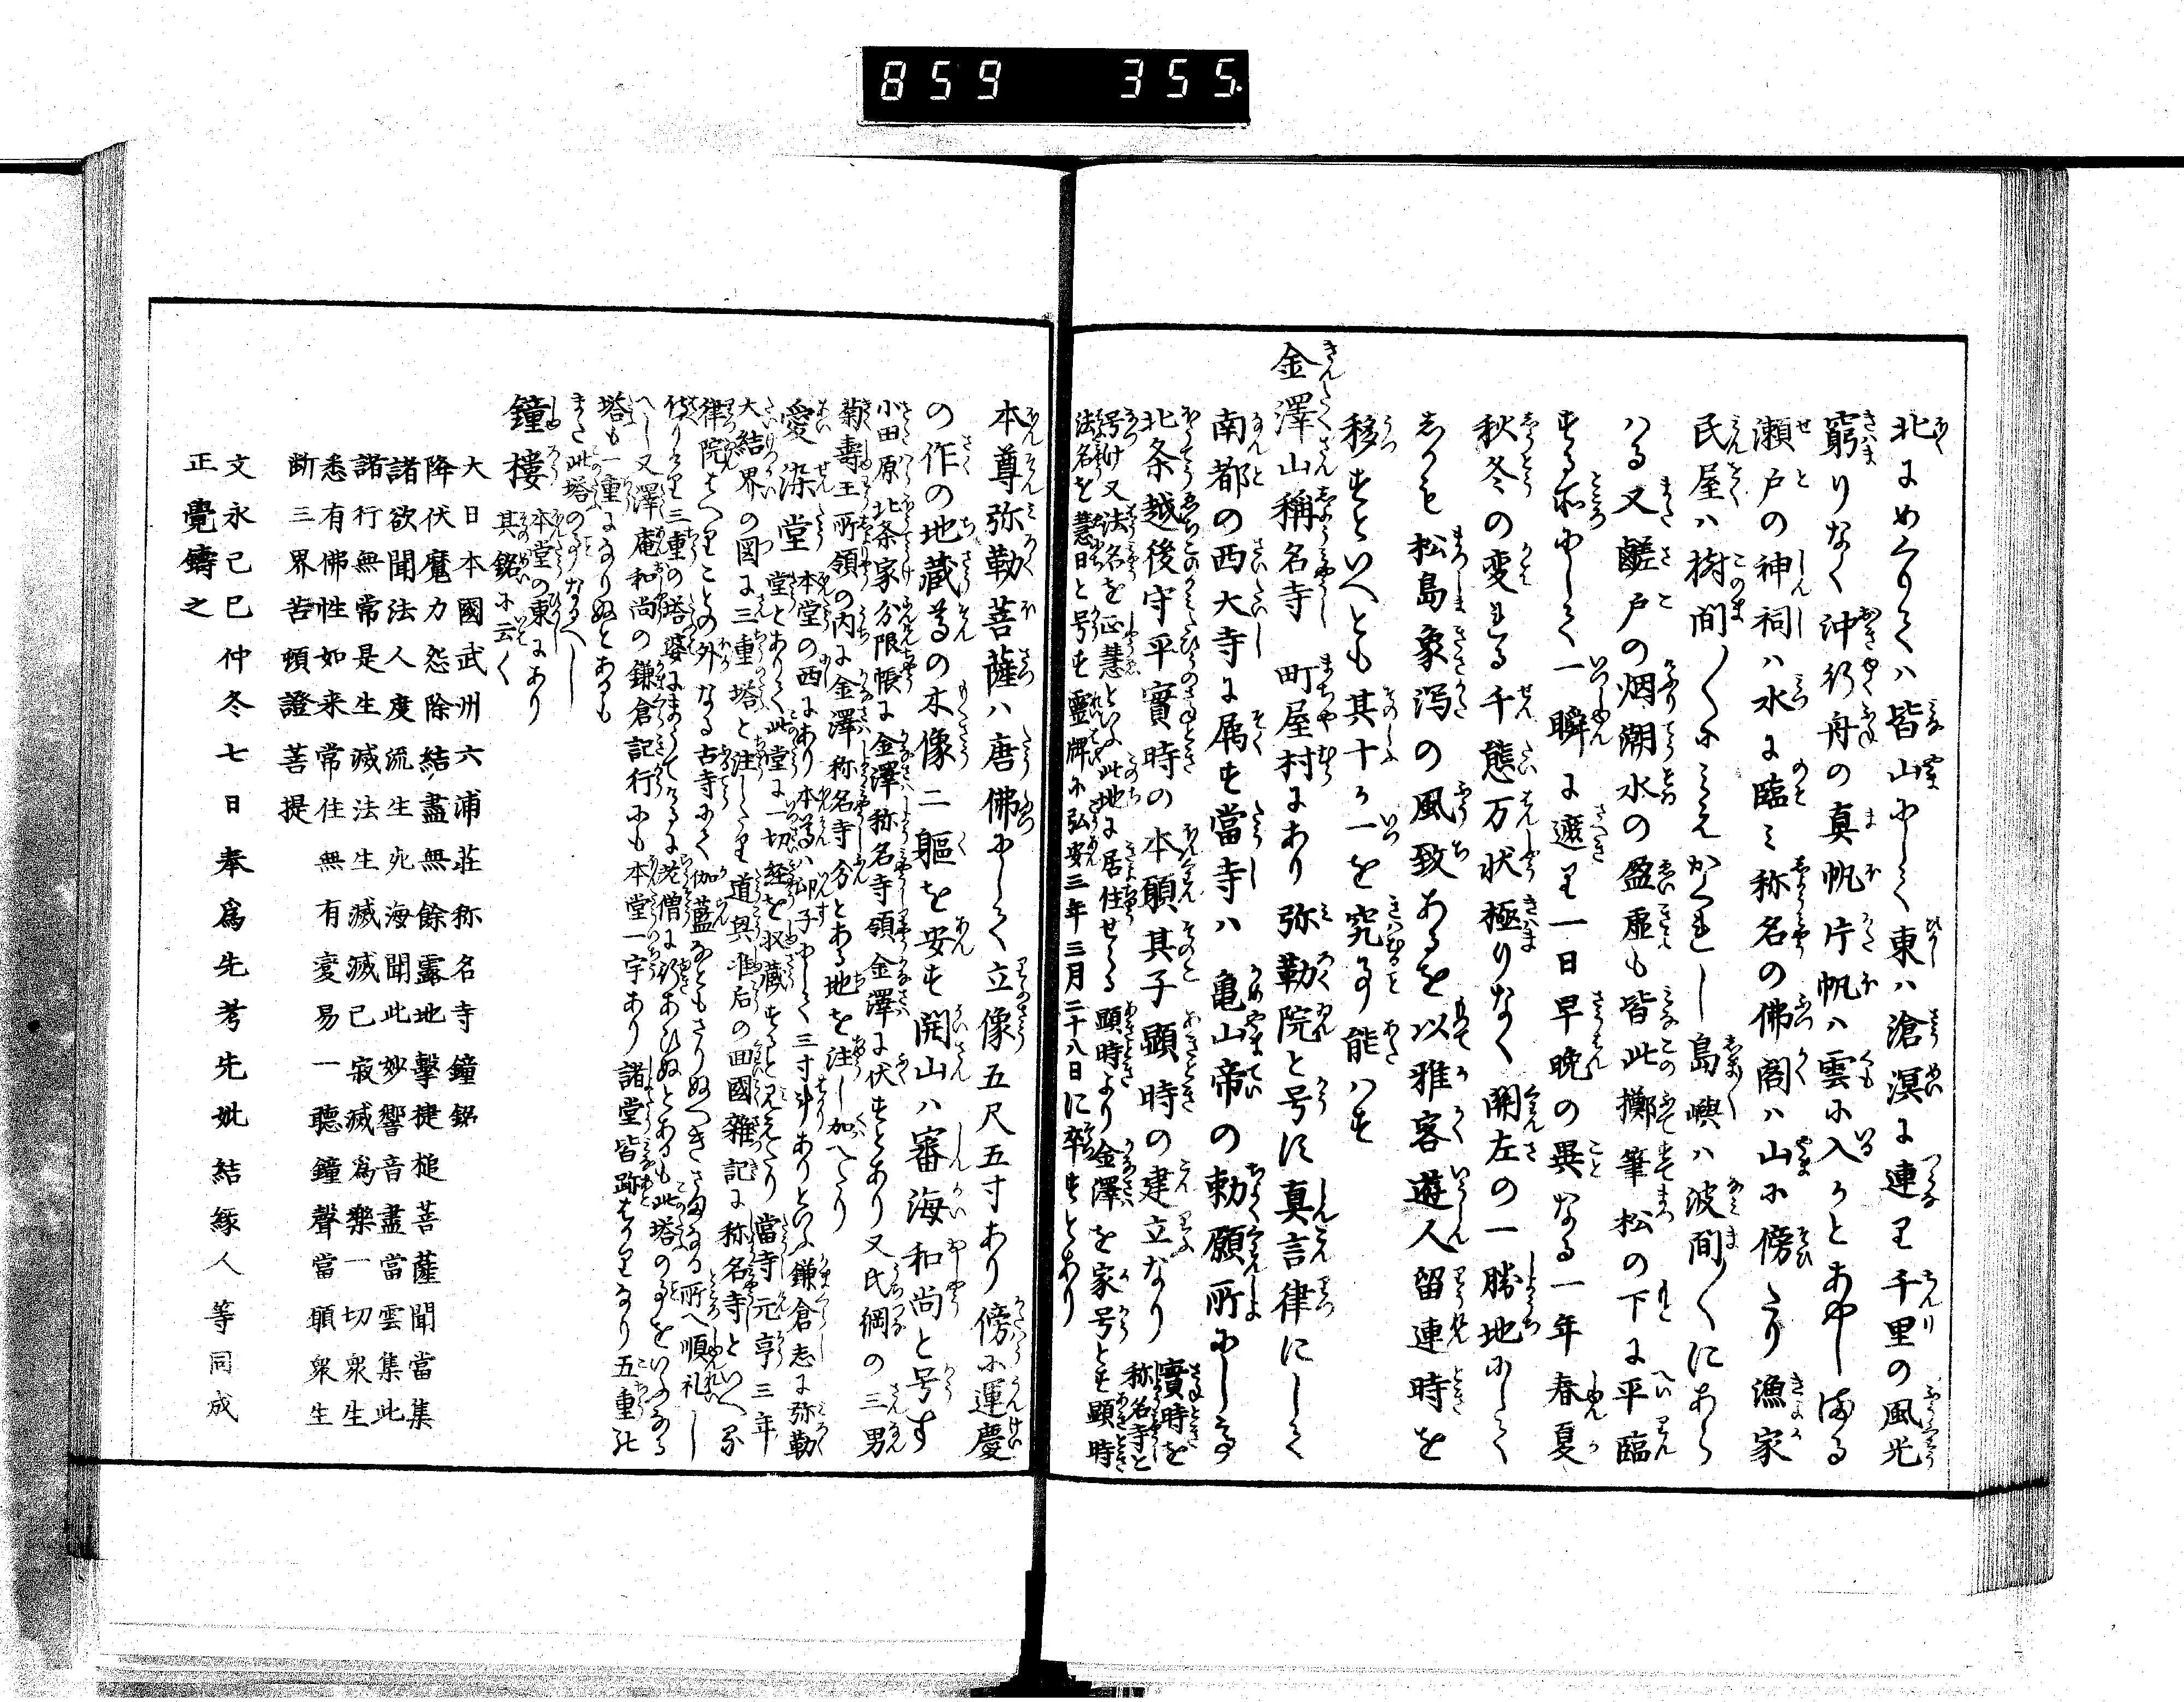 859 355.
北にめくりてハ皆山にして東ハ滄溟に連り千里の風光
窮りなく沖行舟の真帆片帆ハ雲に入かとあやしまる
瀬戸の神祠ハ水に臨ミ称名の佛閣ハ山に傍たり漁家
民屋ハ樹間〱にみえかくれし島嶼ハ波間〱にあら
ハる又鹺戸の烟潮水の盈虚も皆此擲筆松の下に平臨
する所にして一瞬に遮り一日早晩の異なる一年春夏
秋冬の変れる千態万状極りなく関左の一勝地にして
しかも松島象潟の風致あるを以雅客遊人留連時を
移すといへとも其十か一を究る事能ハす
金澤山稱名寺 町屋村にあり弥勒院と号に真言律にして
南都の西大寺に属す當寺ハ亀山帝の勅願所にして
北条越後守平實時の本願其子顕時の建立なり 實時を称名寺と
号け又法名を正慧といふ此地に居住せる 顕時より金澤を家号とす顕時
法名を慧日と号す靈牌に弘安三年三月二十八日に卒すとあり
本尊弥勒菩薩ハ唐佛にして立像五尺五寸あり傍に運慶
の作の地蔵尊の木像二軀を安す開山ハ審海和尚と号す
小田原北条家分限帳に金澤称名寺領金澤に伏すとあり又氏綱の三男
菊壽王所領の内に金澤称名寺分とある地を注し加へたり
愛染堂 本堂の西にあり本尊ハ印子にして三寸計ありといふ鎌倉志に弥勒
堂とありて此堂に一切経を収蔵すると見えたり當寺元亨三年
大結界の図に三重塔と注したり道興准后の回國雑記に称名寺といへる
律院はへりことの外なる古寺にて伽藍なともさりぬへきさまなる所へ順礼し
侍りけり三重の塔婆にまうてけるに老僧に行あひぬとあるも此塔の事をいふなる
へし又澤庵和尚の鎌倉記行にも本堂一宇あり諸堂皆跡はかりなり五重の
塔も一重になりぬとあるも
また此塔の事なるへし
鐘樓 本堂の東にあり
其銘に云く
大日本國武州六浦荘称名寺鐘銘
降伏魔力怨除結盡無餘露地擊揵槌菩薩聞當集
諸欲聞法人度流生死海聞此妙響音盡當雲集此
諸行無常是生滅法生滅滅已寂滅爲樂一切衆生
悉有佛性如来常住無有変易一聽鐘聲當願衆生
断三界苦頓證菩提
文永己巳仲冬七日奉爲先考先妣結縁人等同成
正覺鑄之